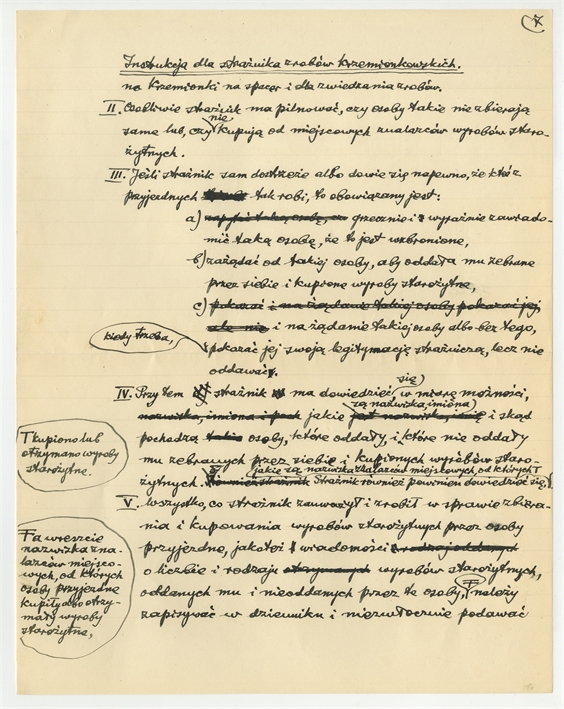 7
Instrukcja dla strażnika zrobów Krzemionkowskich.
na Krzemionki na spacer i dla zwiedzania zrobów.
II. Osobliwie strażnik ma pilnować, czy osoby takie nie zbierają
same lub, czy nie kupują od miejscowych znalazców wyrobów staro-
żytnych.
III. Jeśli strażnik sam dostrzeże albo dowie się napewno, że ktoś z
przyjezdnych tak robi, to obowiązany jest:
a) grzecznie i wyraźnie zawiado-
mić taką osobę, że to jest wzbronione,
b) zażądać od takiej osoby, aby oddała mu zebrane
przez siebie i kupione wyroby starożytne,
c) pokazać i na żądanie takiej osoby pokazać jej
i na żądanie takiej osoby albo bez tego,
kiedy trzeba,
pokazać jej swoją legitymację strażniczą, lecz nie
oddawać.
IV. Przy tem strażnik ma dowiedzieć się, w miarę możności,
są nazwiska, imiona
nazwiska, imiona i jakie i skąd
pochodzą osoby, które oddały, i które nie oddały
mu zebranych przez siebie i kupionych wyrobów staro-
T kupiono lub
otrzymano wyroby
starożytne.
jakie są nazwiska znalazców miejscowych, od których T
żytnych. Również strażnik Strażnik również powinien dowiedzieć się,
V. Wszystko, co strażnik zauważył i zrobił w sprawie zbiera-
nia i kupowania wyrobów starożytnych przez osoby
przyjezdne, jakoteż wiadomości o rodzaj oddanych
o liczbie i rodzaju otrzymanych wyrobów starożytnych,
oddanych mu i nieoddanych przez te osoby, F należy
zapisywać w dzienniku i niezwłocznie podawać
F a wreszcie
nazwiska zna-
lazców miejsco-
wych, od których
osoby przyjezdne
kupiły albo otrzy-
mały wyroby
starożytne,